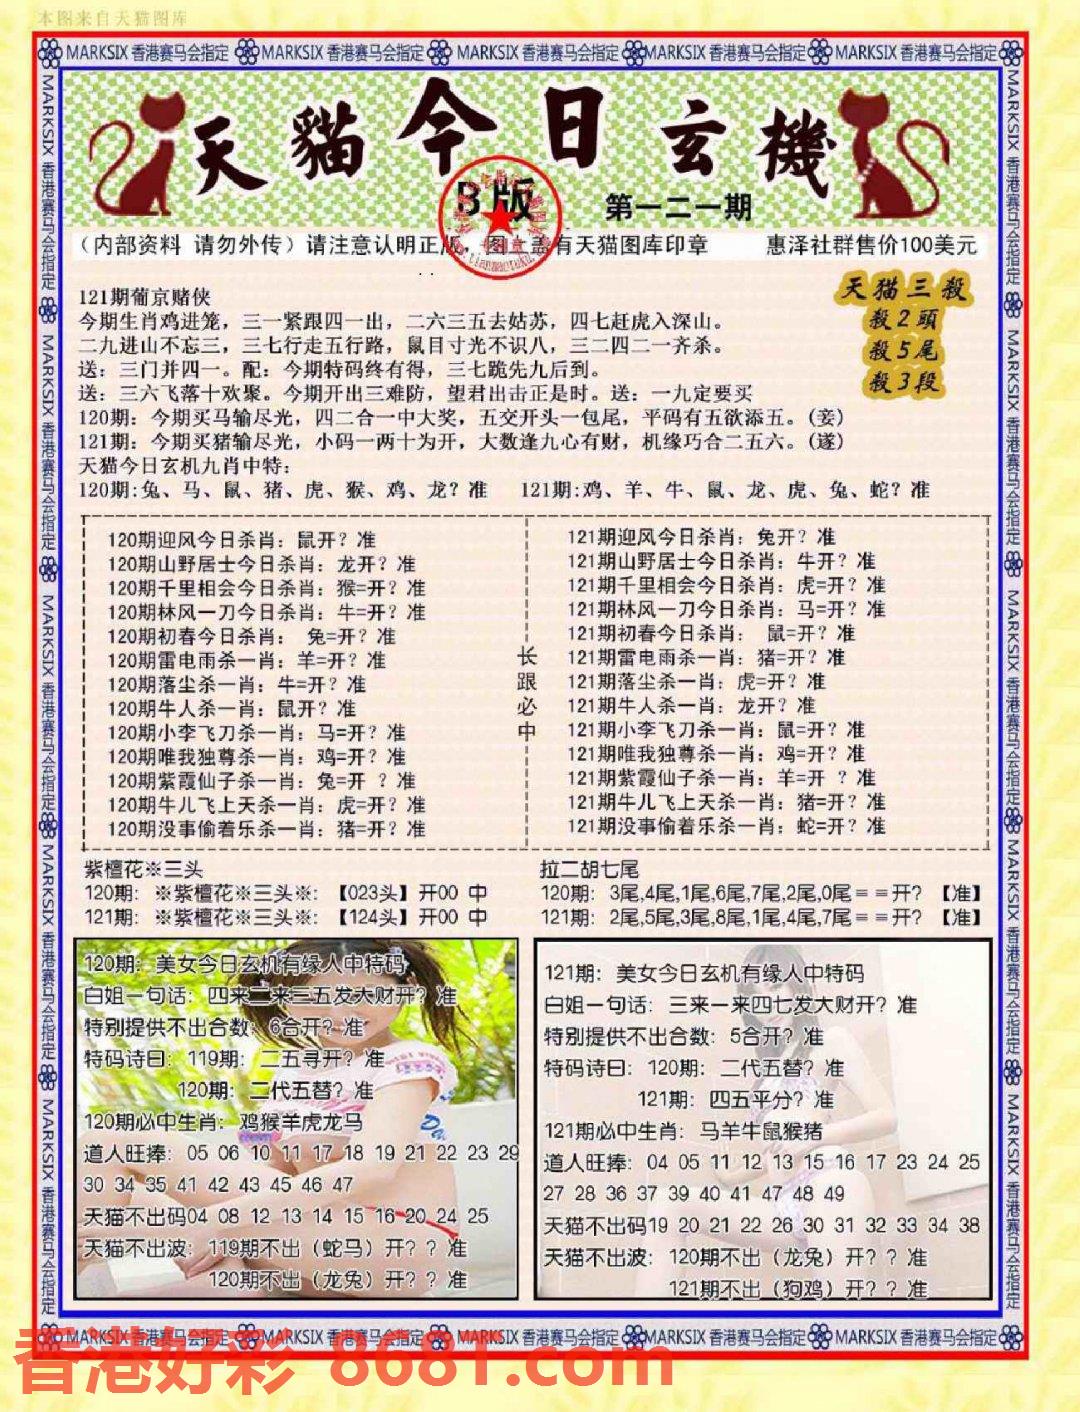 本图来自天猫图库
MARKSIX 香港赛马会指定 MARKSIX 香港赛马会指定 MARKSIX 香港赛马会指定 MARKSIX 香港赛马会指定 MARKSIX 香港赛马会指定
天貓今日玄機
B版 第一二一期
(内部资料 请勿外传) 请注意认明正版，图上盖有天猫图库印章 惠泽社群售价100美元
天猫三殺
殺2頭
殺5尾
殺3段
121期葡京赌侠
今期生肖鸡进笼，三一紧跟四一出，二六三五去姑苏，四七赶虎入深山。
二九进山不忘三，三七行走五行路，鼠目寸光不识八，三二四二一齐杀。
送：三门并四一。配：今期特码终有得，三七跪先九后到。
送：三六飞落十欢聚。今期开出三难防，望君出击正是时。送：一九定要买
120期：今期买马输尽光，四二合一中大奖，五交开头一包尾，平码有五欲添五。(妾)
121期：今期买猪输尽光，小码一两十为开，大数逢九心有财，机缘巧合二五六。(遂)
天猫今日玄机九肖中特：
120期:兔、马、鼠、猪、虎、猴、鸡、龙？准 121期:鸡、羊、牛、鼠、龙、虎、兔、蛇？准
120期迎风今日杀肖：鼠开？准
120期山野居士今日杀肖：龙开？准
120期千里相会今日杀肖：猴=开？准
120期林风一刀今日杀肖：牛=开？准
120期初春今日杀肖： 兔=开？准
120期雷电雨杀一肖：羊=开？准
120期落尘杀一肖：牛=开？准
120期牛人杀一肖：鼠开？准
120期小李飞刀杀一肖：马=开？准
120期唯我独尊杀一肖：鸡=开？准
120期紫霞仙子杀一肖：兔=开 ？准
120期牛儿飞上天杀一肖：虎=开？准
120期没事偷着乐杀一肖：猪=开？准
长跟必中
121期迎风今日杀肖：兔开？准
121期山野居士今日杀肖：牛开？准
121期千里相会今日杀肖：虎=开？准
121期林风一刀今日杀肖：马=开？准
121期初春今日杀肖： 鼠=开？准
121期雷电雨杀一肖：猪=开？准
121期落尘杀一肖：虎=开？准
121期牛人杀一肖：龙开？准
121期小李飞刀杀一肖：鼠=开？准
121期唯我独尊杀一肖：鸡=开？准
121期紫霞仙子杀一肖：羊=开 ？准
121期牛儿飞上天杀一肖：猪=开？准
121期没事偷着乐杀一肖：蛇=开？准
紫檀花※三头
120期：※紫檀花※三头※:【023头】开00 中
121期：※紫檀花※三头※:【124头】开00 中
拉二胡七尾
120期：3尾,4尾,1尾,6尾,7尾,2尾,0尾==开？【准】
121期：2尾,5尾,3尾,8尾,1尾,4尾,7尾==开？【准】
120期：美女今日玄机有缘人中特码
白姐一句话：四来二来三五发大财开？准
特别提供不出合数：6合开？准
特码诗曰：119期：二五寻开？准
120期：二代五替？准
120期必中生肖：鸡猴羊虎龙马
道人旺捧：05 06 10 11 17 18 19 21 22 23 29
30 34 35 41 42 43 45 46 47
天猫不出码04 08 12 13 14 15 16 20 24 25
天猫不出波：119期不出（蛇马）开？？准
120期不出（龙兔）开？？准
121期：美女今日玄机有缘人中特码
白姐一句话：三来一来四七发大财开？准
特别提供不出合数：5合开？准
特码诗曰：120期：二代五替？准
121期：四五平分？准
121期必中生肖：马羊牛鼠猴猪
道人旺捧：04 05 11 12 13 15 16 17 23 24 25
27 28 36 37 39 40 41 47 48 49
天猫不出码19 20 21 22 26 30 31 32 33 34 38
天猫不出波：120期不出（龙兔）开？？准
121期不出（狗鸡）开？？准
MARKSIX 香港赛马会指定 MARKSIX 香港赛马会指定 MARKSIX 香港赛马会指定 MARKSIX 香港赛马会指定 MARKSIX 香港赛马会指定
香港好彩 8681.com